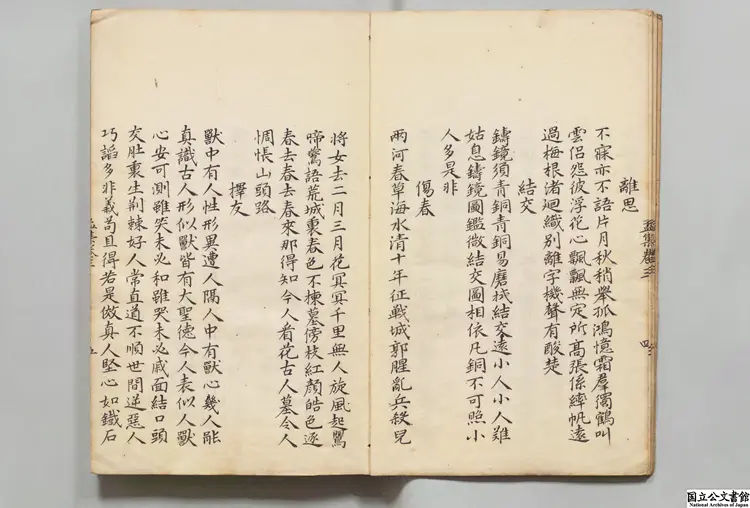 離思
不寐亦不語片月秋稍舉孤鴻憶霜羣獨鶴叫
雲侶怨彼浮花心飄飄無定所高張係繂帆遠
過梅根渚廻織別離字機聲有酸楚
結交
鑄鏡須青銅青銅易磨拭結交遠小人小人難
姑息鑄鏡圖鑑微結交圖相依凡銅不可照小
人多是非
傷春
兩河春草海水清十年征戰城郭腥亂兵殺兒
將女去二月三月花冥冥千里無人旋風起鶯
啼鷰語荒城裏春色不揀墓傍枝紅顔皓色逐
春去春去春來那得知今人看花古人墓令人
惆悵山頭路
擇友
獸中有人性形異遭人隔人中有獸心幾人能
真識古人形似獸皆有大聖德今人表似人獸
心安可測雖笑未必和雖哭未必戚面結口頭
交肚裏生荆棘好人常直道不順世間逆惡人
巧諂多非義苟且得若是傚真人堅心如鐵石
国立公文書館
National Archives of Japan